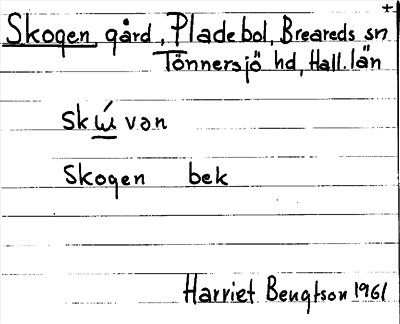 +
Skogen gård, Pladebol, Breareds sn
Tönnersjö hd, Hall. län
skẃvən
Skogen bek
Harriet Bengtson 1961